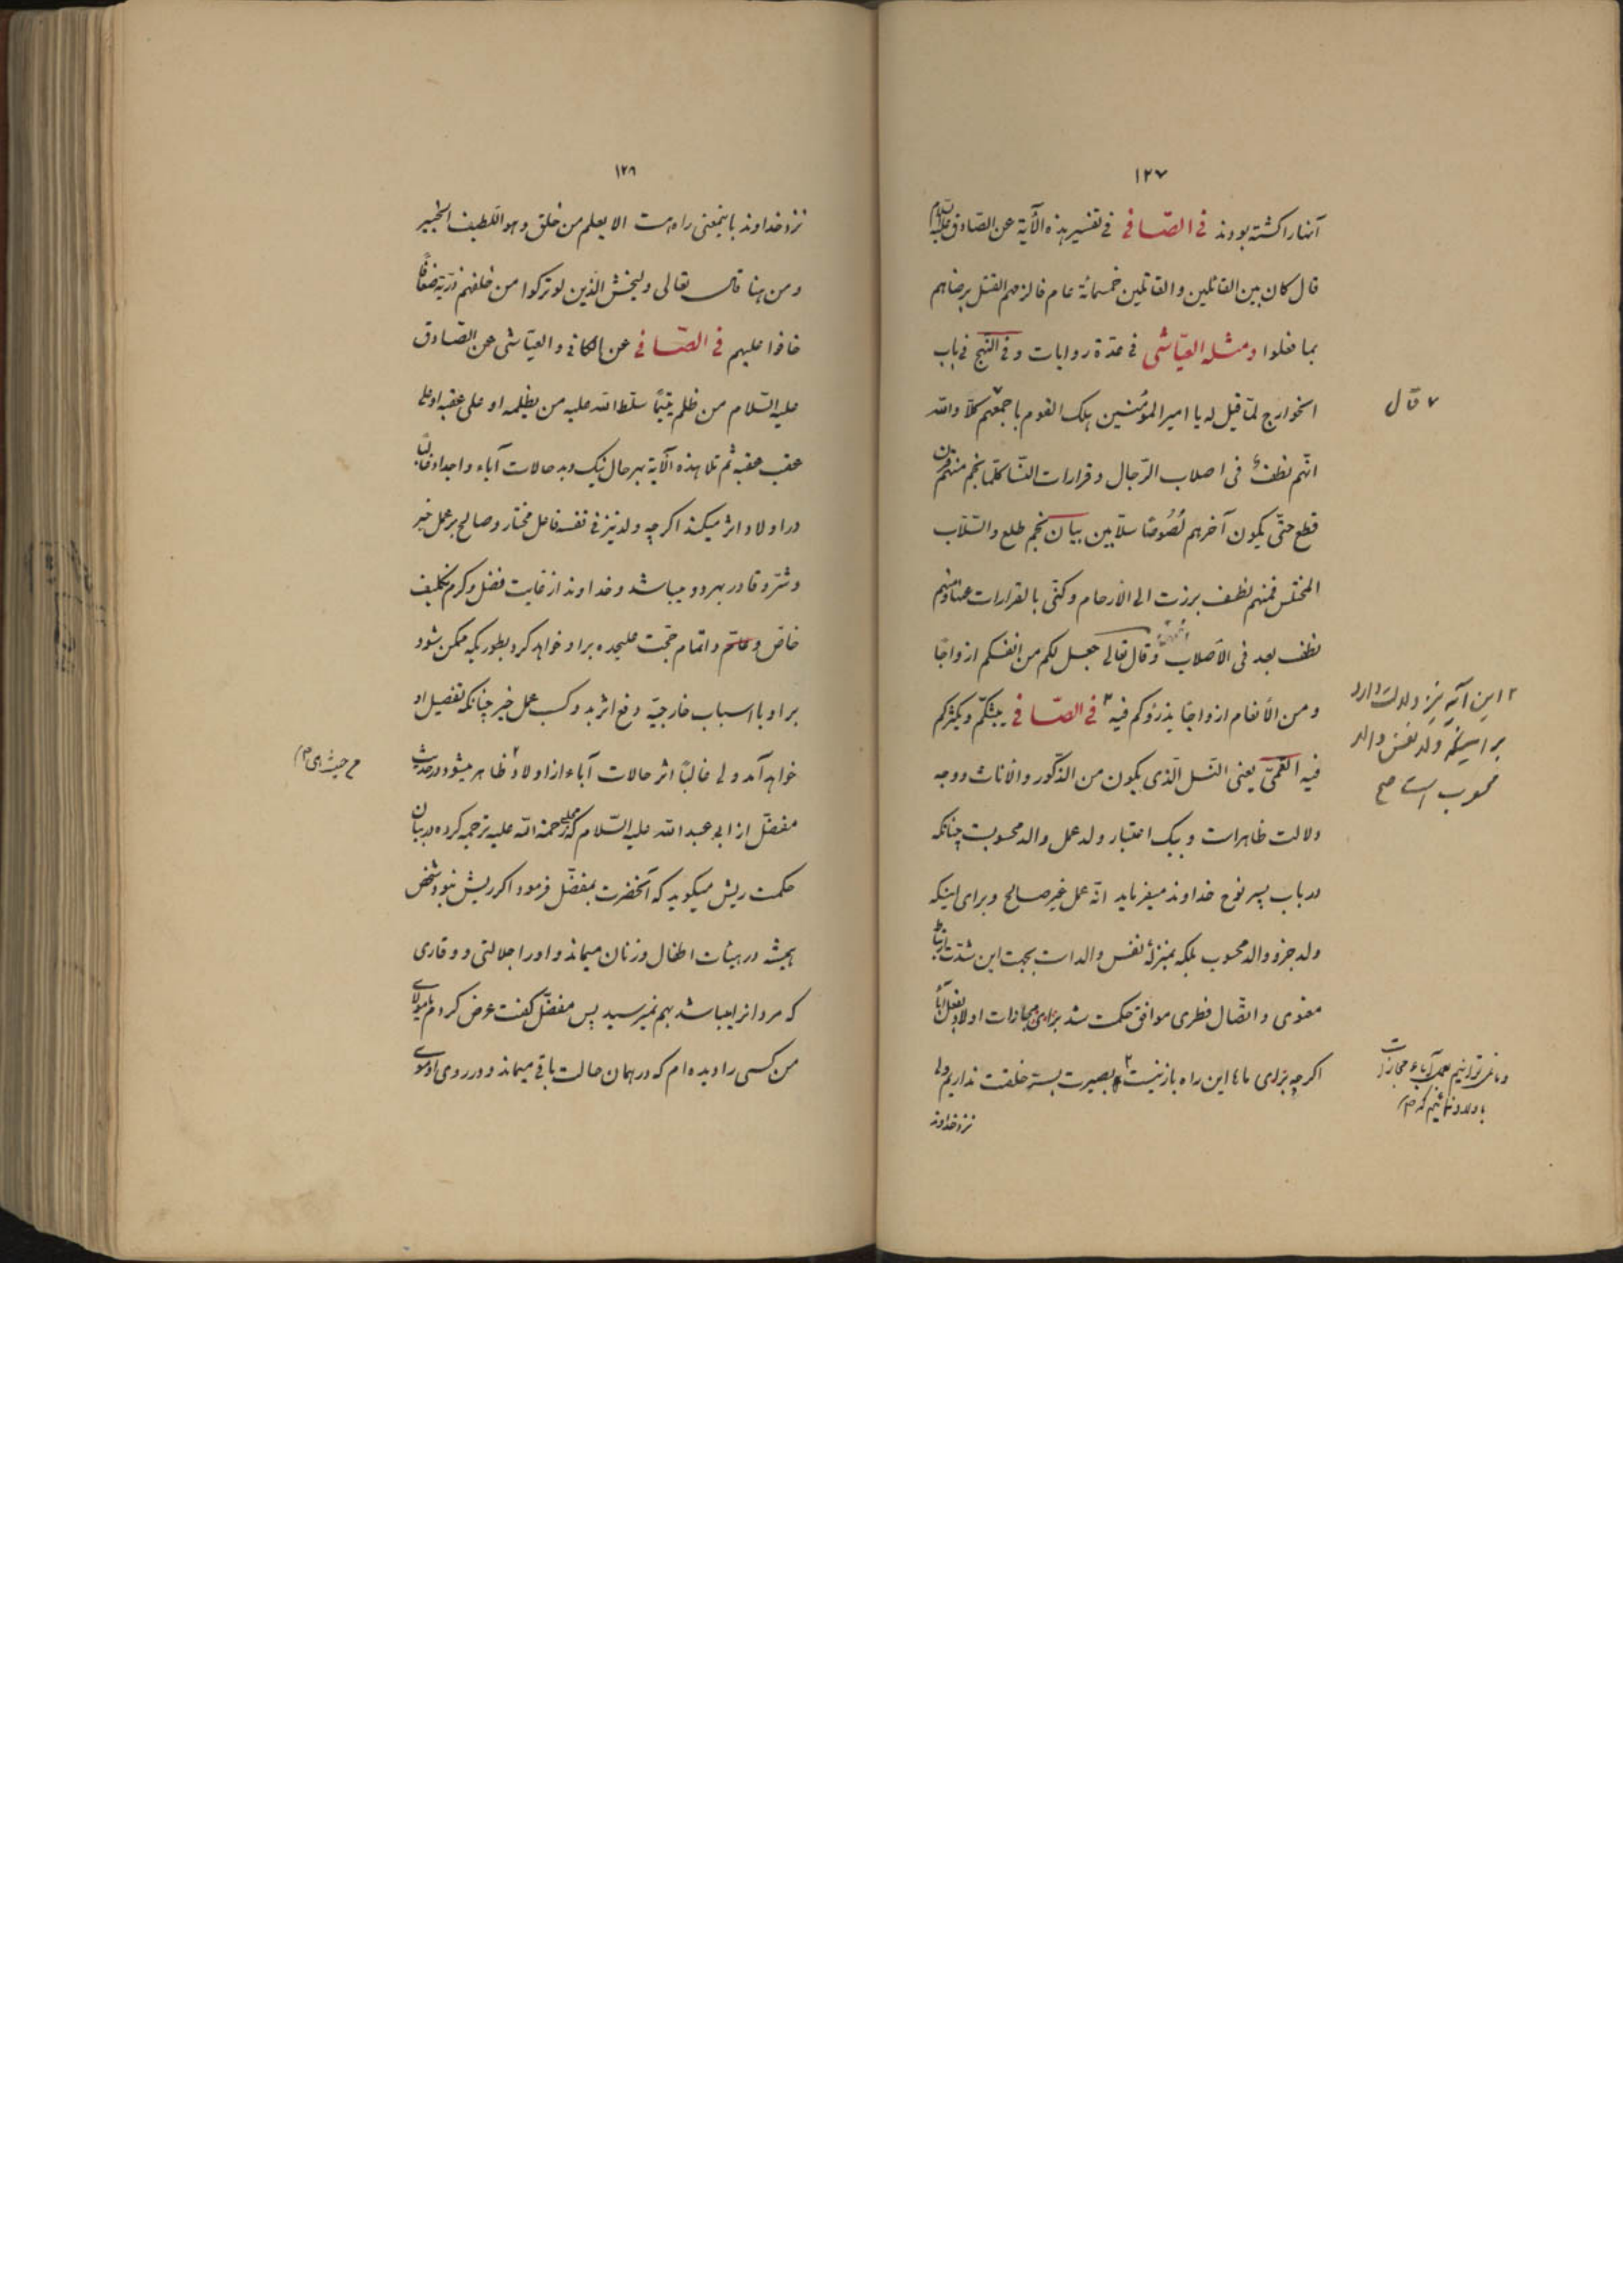 ١٢٧
آنها را کشته بودند فی الصّافی فی تفسیر هذه الآیة عن الصّادق علیه السّلام
قال کان بین القائلین و القاتلین خمسمائة عام فالزمهم القتل برضاهم
بما فعلوا و مثله العیّاشی فی عدّة روایات و فی النهج فی باب
الخوارج لمّا قیل له یا امیر المؤمنین هلک القوم باجمعهم ٧ کلّا والله
٧ قال
انّهم نطف فی اصلاب الرّجال و قرارات النّسا کلّما نجم منهم قرن
قطع حتّی یکون آخرهم لُصُوصًا سلّابین بیان نجم طلع والسّلاب
المختلس فمنهم نطف برزت الی الارحام و کنّی بالقرارات عنها و منهم
نطف بعد فی الاصلاب و قال تعالی جعل لکم من انفسکم ازواجًا
و من الأنعام ازواجًا یذرؤکم فیه ٢ فی الصّافی یبثکم و یکثرکم
٢ این آیه نیز دلالت دارد
بر اینکه ولد نفس والد
محسوب است صح
فیه القمّی یعنی النّسل الّذی یکون من الذّکور والأناث و وجه
دلالت ظاهر است و بیک اعتبار ولد عمل والد محسوبست چنانکه
در باب پسر نوح خداوند میفرماید انّه عمل غیر صالح و برای اینکه
ولد جزو والد محسوب بلکه بمنزلهٔ نفس والد است بجهت این شدّت ارتباط
معنوی و اتّصال فطری موافق حکمت شد برای مجازات اولاد بفعل آباء
اگر چه برای ما این راه باز نیست ٢ بصیرت بسرّ خلقت نداریم ولی
و ما نمی توانیم بعمل آباء مجازات
باولاد نمائیم که صح
نزد خداوند
١٢٨
نزد خداوند باینمعنی راه هست الا یعلم من خلق و هو اللّطیف الخبیر
و من هنا قال تعالی و لیخش الّذین لو ترکوا من خلفهم ذرّیة ضعافًا
خافوا علیهم فی الصّافی عن الکافی و العیّاشی عن الصّادق
علیه السّلام من ظلم یتیمًا سلّط الله علیه من یظلمه او علی عقبه او علی
عقب عقبه ثم تلا هذه الآیة بهر حال نیک و بد حالات آباء و اجداد غالبًا
در اولاد اثر میکند اگر چه ولد نیز فی نفسه فاعل مختار و صالح بر عمل خیر
و شرّ و قادر بهر دو میباشد و خداوند از غایت فضل و کرم تکلیف
خاصّ و عامّ و اتمام حجّت علیحده بر او خواهد کرد بطوریکه ممکن شود
بر او با اسباب خارجیّه دفع اثر بد و کسب عمل خیر چنانکه تفصیل او
خواهد آمد ولی غالبًا اثر حالات آباء از اولاد ٢ ظاهر میشود در حدیث
مفضّل از ابی عبد الله علیه السّلام که مجلسی رحمة الله علیه ترجمه کرده در بیان
حکمت ریش میگوید که آنحضرت بمفضّل فرمود اگر ریش نبود شخص
همیشه در هیئات اطفال و زنان میماند و او را جلالتی و وقاری
که مردانرا میباشد بهم نمیرسید پس مفضّل گفت عرض کردم یا مولای
من کسی را دیده ام که در همان حالت باقی میماند و در روی او موی